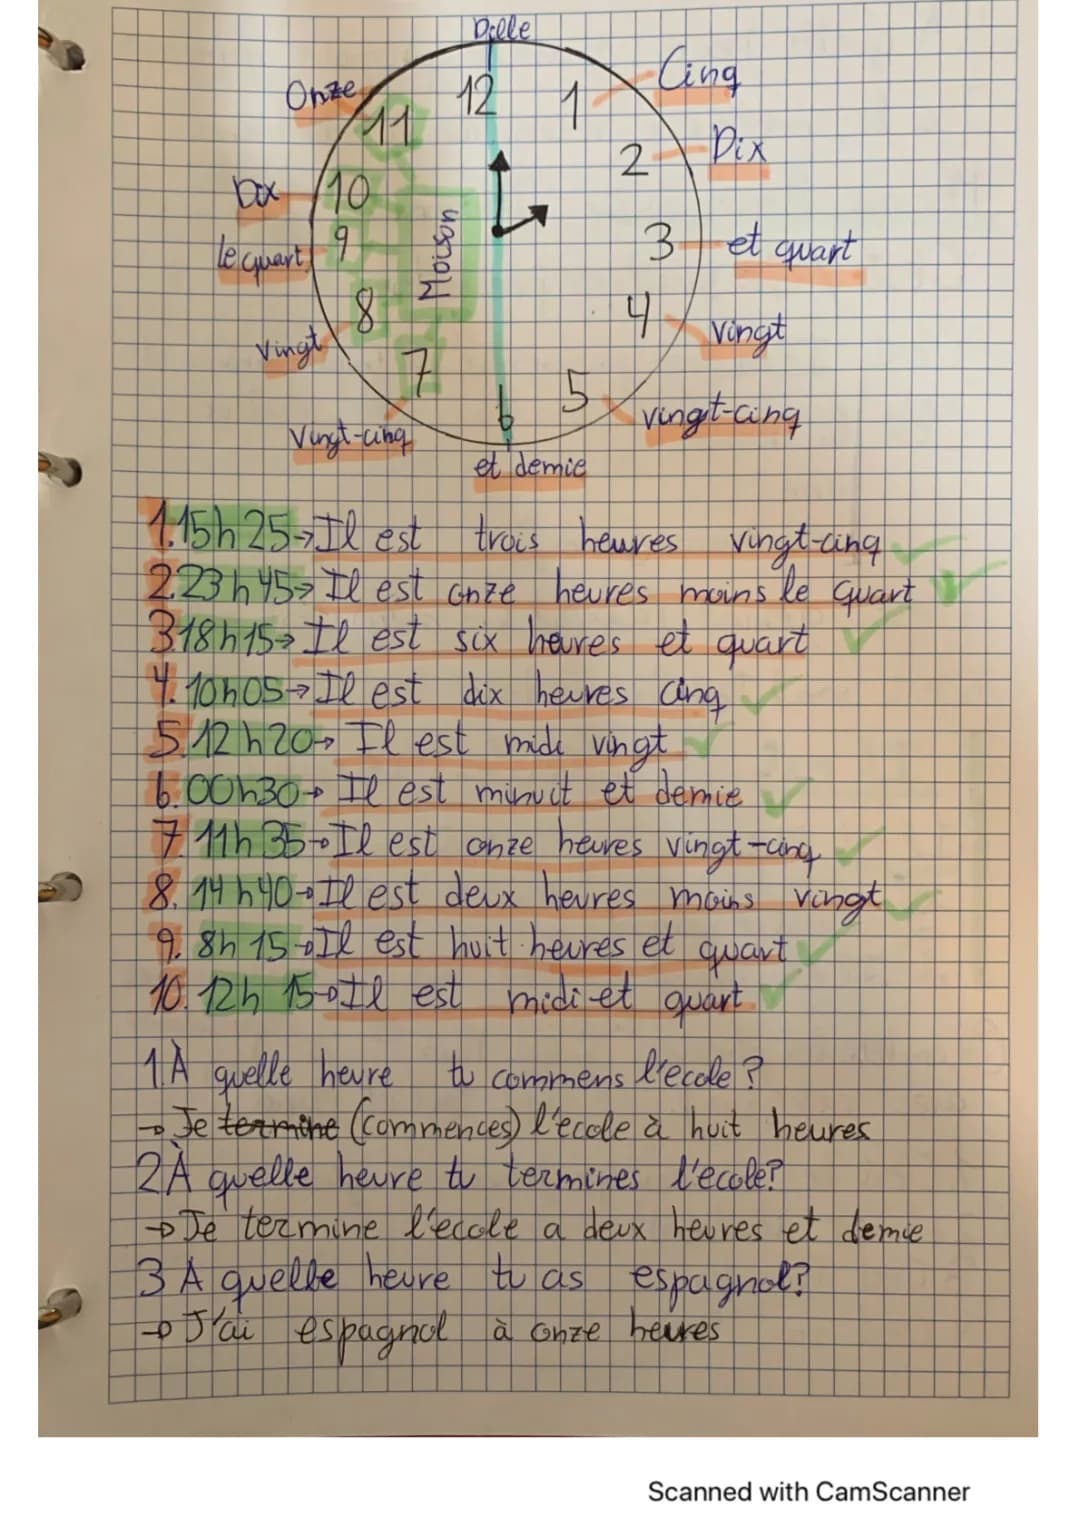 Dille
Onze
12
1
Cinq
11
2
Dix
Dix
10
Moison
le quart
9
3
et quart
8
4
Vingt
Vingt
7
5
vingt-cinq
6
Vingt-cinq
et demie
1.15h25→Il est trois heures vingt-cinq
2.23h45→Il est onze heures moins le quart
3.18h15→Il est six heures et quart
4.10h05→Il est dix heures cinq
5.12h20→Il est midi vingt
6.00h30→Il est minuit et demie
7.11h35→Il est onze heures vingt-cinq
8.14h40→Il est deux heures moins vingt
9.8h15→Il est huit heures et quart
10.12h15→Il est midi et quart
1 À quelle heure tu commens l'ecole?
→Je termine (commences) l'ecole à huit heures
2 À quelle heure tu termines l'ecole?
→Je termine l'ecole a deux heures et demie
3 A quelle heure tu as espagnol?
→J'ai espagnol à onze heures
Scanned with CamScanner